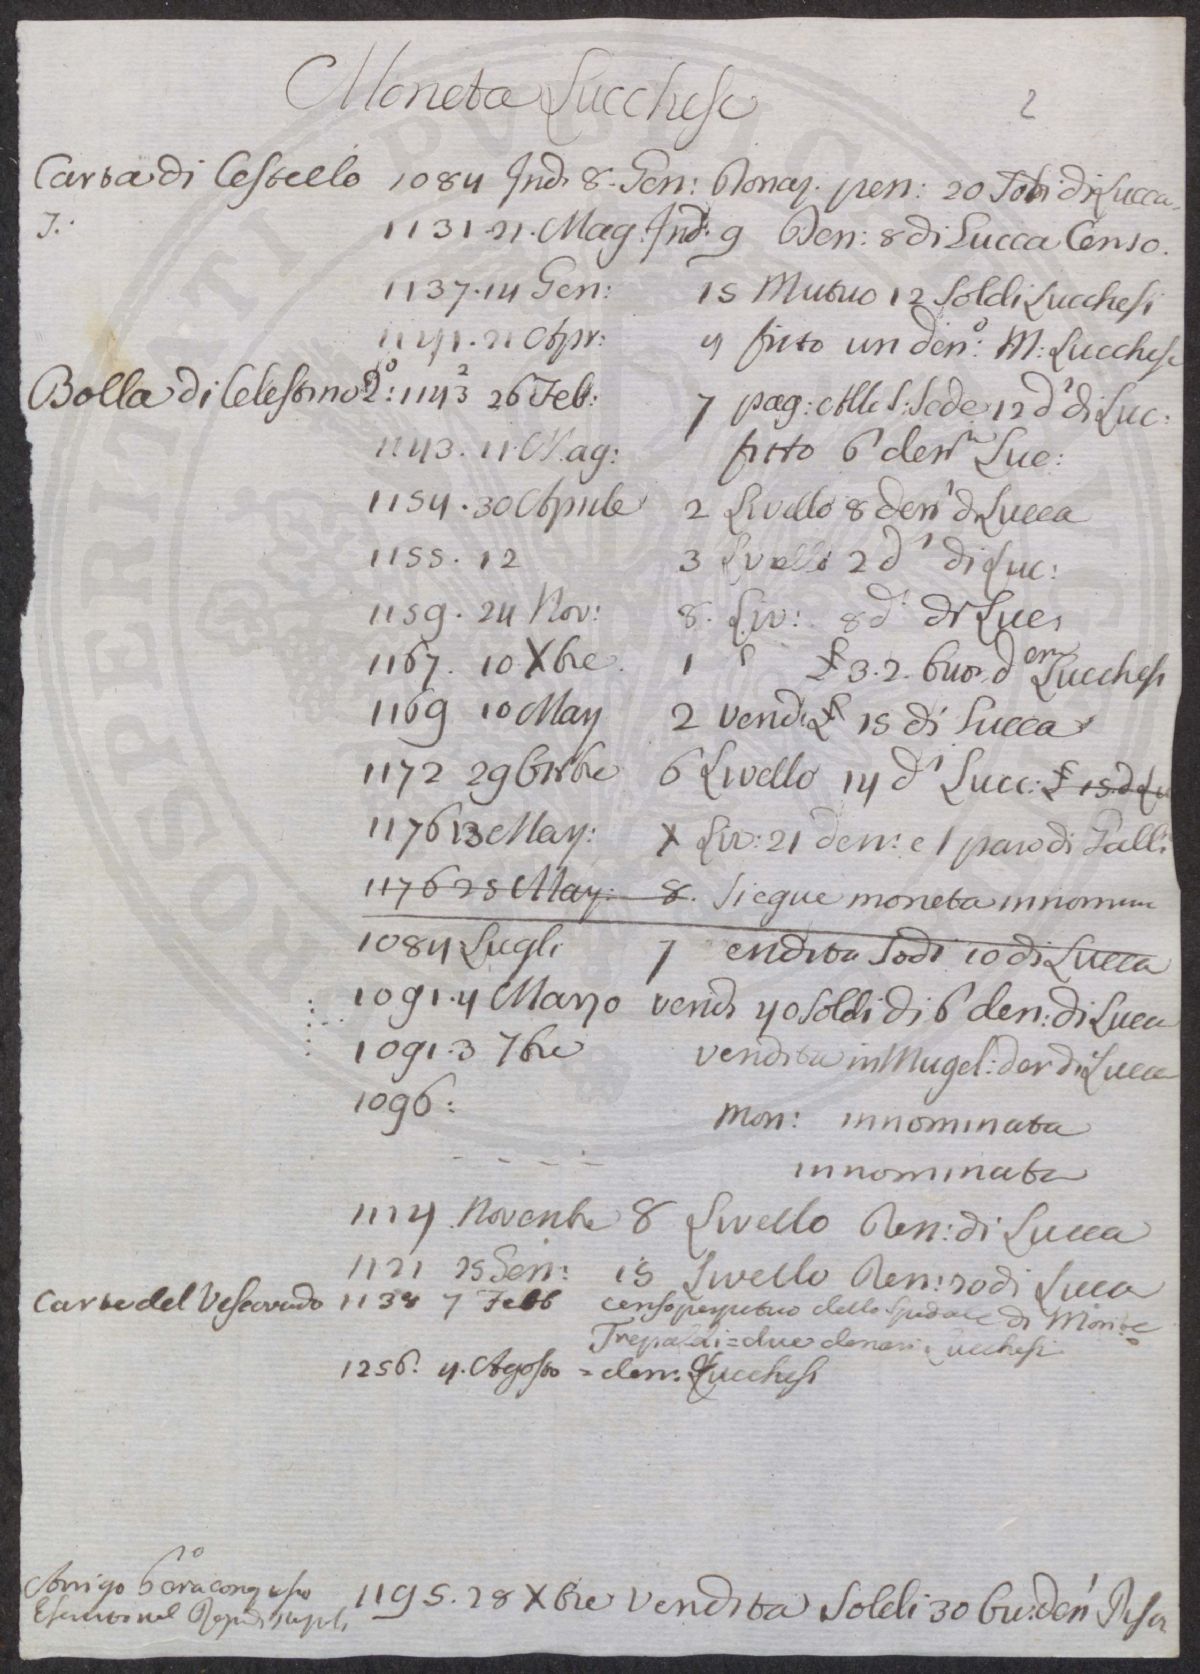 Moneta Lucchese
2
Carta di Cestello 1084 Ind. 8. Gen: Donaz. pen: 20 Soldi di Lucca
J.: 1131. 21. Mag. Ind: 9 Den: 8 di Lucca Censo.
1137. 14 Gen: 15 Mutuo 12 Soldi Lucchesi
1141. 21 Apr: 4 fitto un den:º M: Lucchese
Bolla di Celestino 2º: 1143 2 26 Feb: 7 pag: alla S: Sede 12 di Luc:
1143. 11. Mag: fitto 6 den Luc:
1154. 30 Aprile 2 Livello 8 den di Lucca
1155. 12 3 Livello 2 d di Luc:
1159. 24 Nov: 8. Liv: 8 d di Luc
1167. 10 Xbre. 1 £ 3. 2. buo. den Lucchesi
1169 10 May 2 vendi £ 15 di Lucca
1172 29 6 Livello 14 d Lucc: £ 15 d Lu
1176 13 May: X Liv: 21 den: e 1 paro di Galli
1176 25 May: 8. Siegue moneta innomin
1084 Lugli 7 endita Sodi 10 di Lucca
1091. 4 Marzo vend 40 Soldi di 6 den: di Lucca
1091. 3 7bre vendita in Mugel: den di Lucca
1096: Mon: innominata
innominata
1114 Novenbre 8 Livello Den: di Lucca
1121 25 Gen: 15 Livello Den: 20 di Lucca
Carte del Vescovado 1138 7 Febb censo perpetuo dello Spedale di Monte
Trepaldi = due denari Lucchesi
1256. 4. Agosto = den: Lucchesi
Arrigo 6º
Esercito nel
1195. 28 Xbre vendita Soldi 30 bu: den